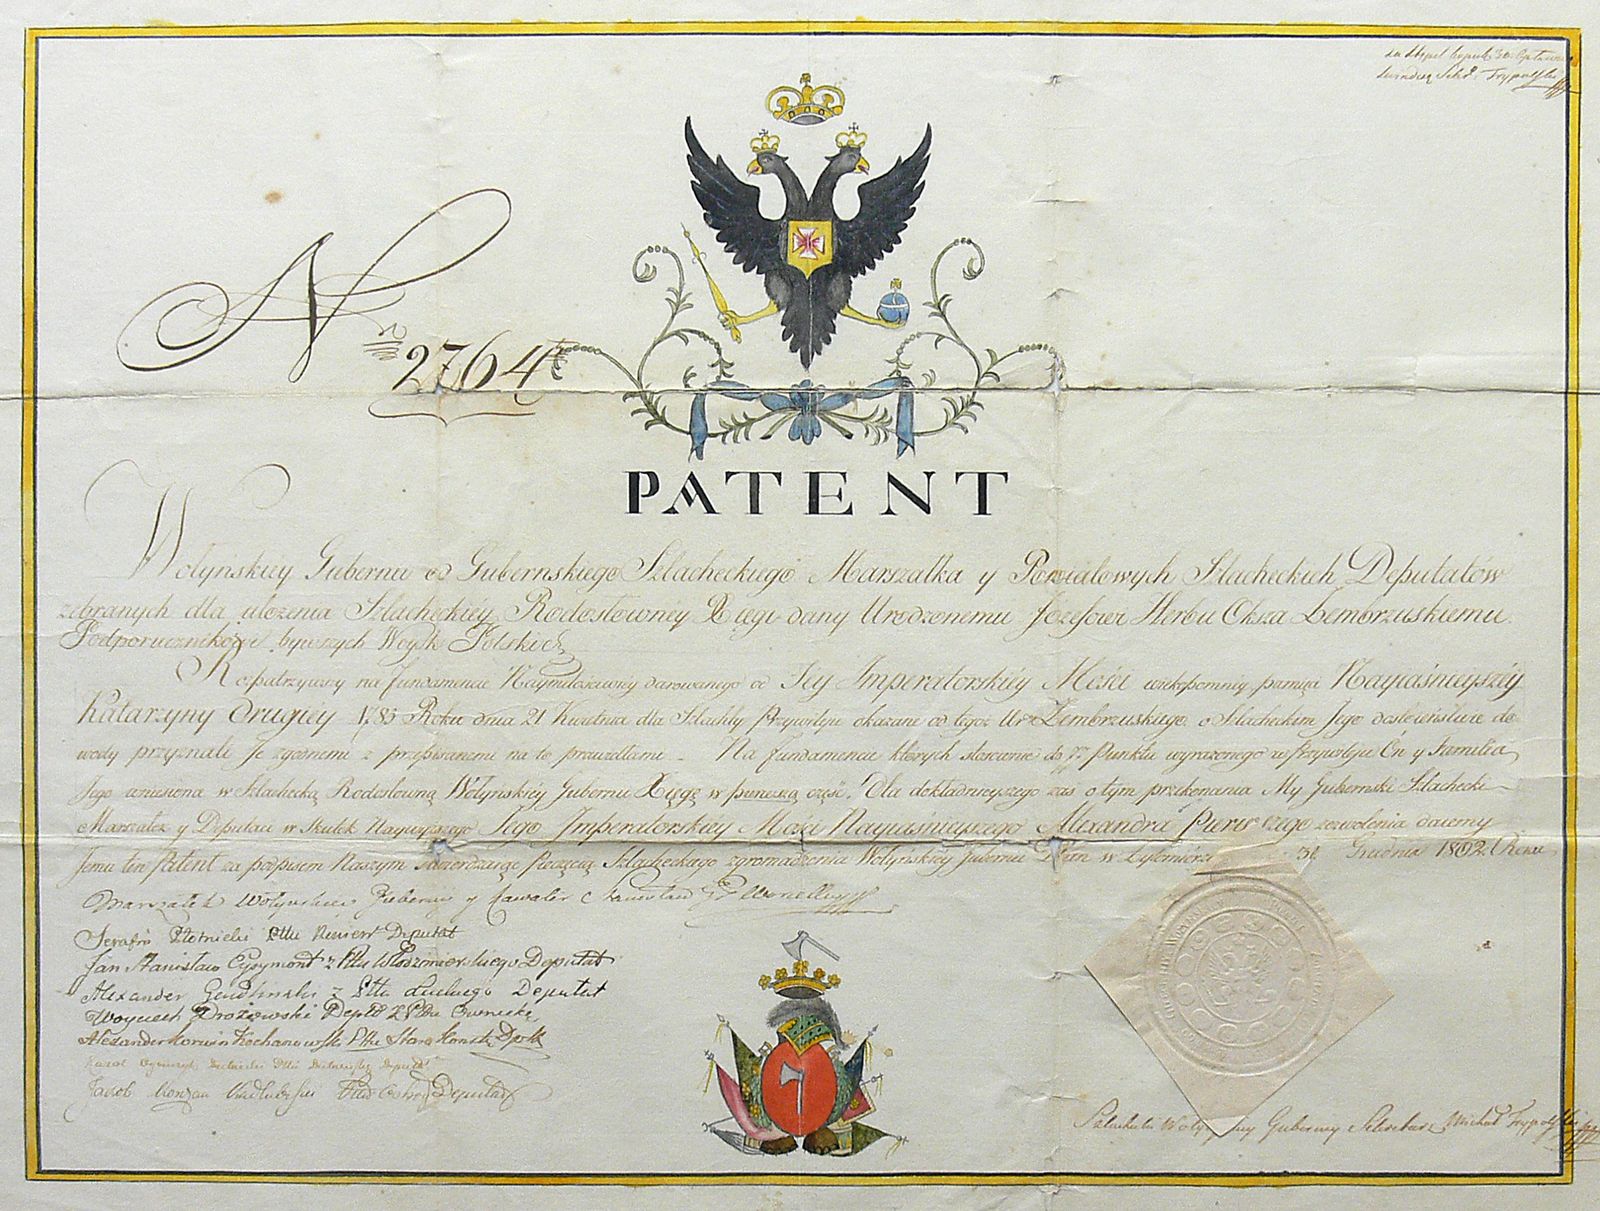 Sekr. Trypolski
N 2764
PATENT
Wołyńskiey Gubernii od Gubernskiego Szlacheckiego Marszałka y Powiatowych Szlacheckich Deputatów
zebranych dla ułożenia Szlacheckiey Rodosłowney Xięgi dany Urodzonemu Jozefowi Herbu Oksza Zembrzuskiemu
Podporucznikowi bywszych Woysk Polskich
Rospatrzywszy na fundamencie Naymiłościwiey darowanego od Jey Imperatorskiey Mości wiekopomney pamięci Nayiaśnieyszey
Katarzyny Drugiey 1785 Roku dnia 21 Kwietnia dla Szlachty Przywileju okazane od tegoż Ur. Zembrzuskiego o Szlacheckim Jego dostoieństwie do-
wody przyznali Je zgodnemi z przepisanemi na to prawidłami. Na fundamencie których stosownie do 77 Punktu wyrażonego w Przywileju On y Familia
Jego wniesiona w Szlachecką Rodosłowną Wołyńskiey Gubernii Xięgę w pierwszą część. Dla dokładnieyszego zaś o tym przekonania My Gubernski Szlachecki
Marszałek y Deputaci w Skutek Naywyższego Jego Imperatorskiey Mości Nayiaśnieyszego Alexandra Pierwszego zezwolenia daiemy
Jemu ten Patent za podpisem Naszym stwierdzaiąc Pieczęcią Szlacheckiego zgromadzenia Wołyńskiey Gubernii Dan w Żytomierzu 31 Grudnia 1802 Roku
Marszałek Wołyńskiey Gubernij y Kawaler Stanisław Worcell
Serafin Deputat
Jan Stanisław z Pttu Włodzimierskiego Deputat
Alexander z Pttu Łuckiego Deputat
Woyciech Drożewski
Alexander Korwin Kochanowski Pttu Staro Konst. Dptt
Deputat
Jakob Deputat
Szlachecki Wołyńskiey Guberney Sekretarz Michał Trypolski